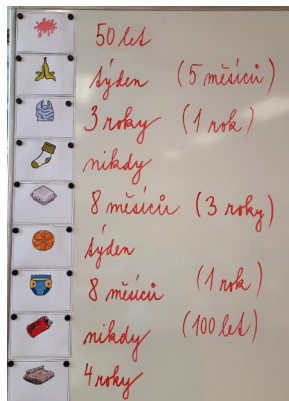 50 let
týden (5 měsíců)
3 roky (1 rok)
nikdy
8 měsíců (3 roky)
týden
8 měsíců (1 rok)
nikdy (100 let)
4 roky